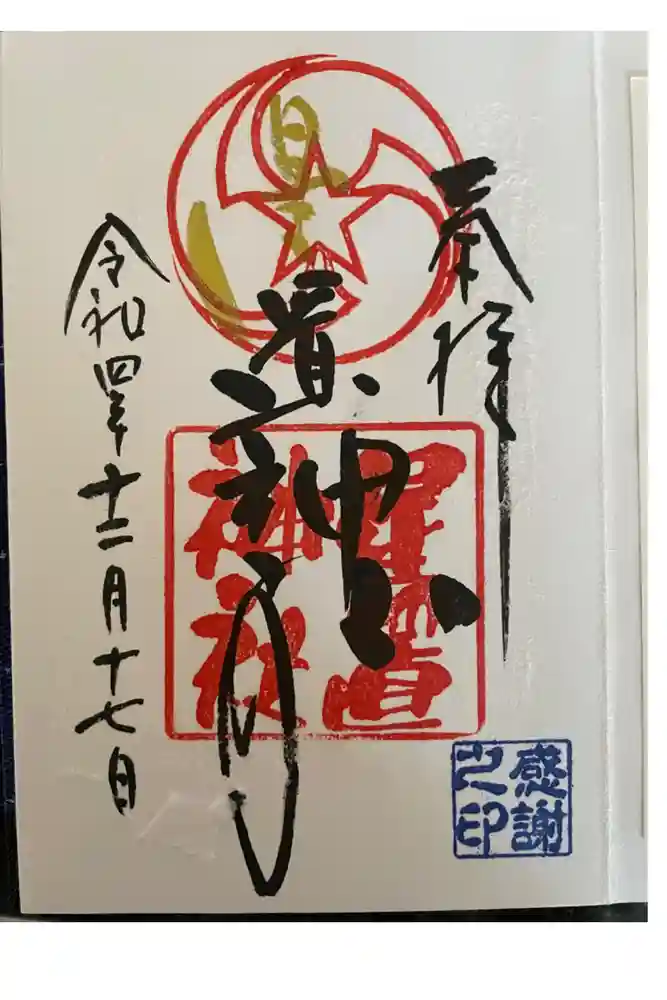 奉拝
星置神社
星置
神社
令和四年十二月十七日
感謝
之印